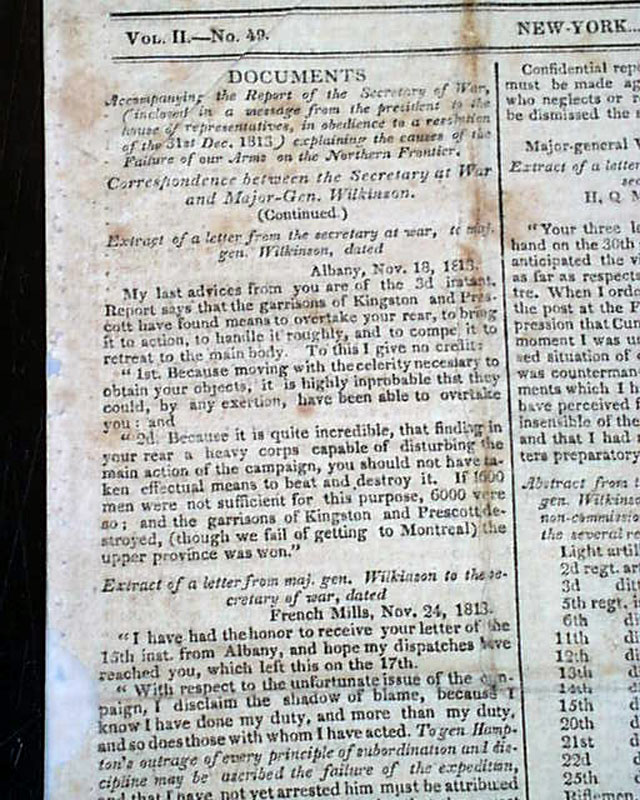 VOL. II.—No. 49.
NEW-YORK...
DOCUMENTS
Accompanying the Report of the Secretary of War,
(inclosed in a message from the president to the
house of representatives, in obedience to a resolution
of the 31st Dec. 1813) explaining the causes of the
Failure of our Arms on the Northern Frontier.
Correspondence between the Secretary at War
and Major-Gen. Wilkinson.
(Continued.)
Extract of a letter from the secretary at war, to maj.
gen. Wilkinson, dated
Albany, Nov. 18, 1813.
My last advices from you are of the 3d instant.
Report says that the garrisons of Kingston and Pres-
cott have found means to overtake your rear, to bring
it to action, to handle it roughly, and to compel it to
retreat to the main body. To this I give no credit:
"1st. Because moving with the celerity necessary to
obtain your objects, it is highly inprobable that they
could, by any exertion, have been able to overtake
you: and
"2d. Because it is quite incredible, that finding in
your rear a heavy corps capable of disturbing the
main action of the campaign, you should not have ta-
ken effectual means to beat and destroy it. If 1600
men were not sufficient for this purpose, 6000 were
so; and the garrisons of Kingston and Prescott de-
stroyed, (though we fail of getting to Montreal) the
upper province was won."
Extract of a letter from maj. gen. Wilkinson to the se-
cretary of war, dated
French Mills, Nov. 24, 1813.
"I have had the honor to receive your letter of the
15th inst. from Albany, and hope my dispatches have
reached you, which left this on the 17th.
"With respect to the unfortunate issue of the cam-
paign, I disclaim the shadow of blame, because I
know I have done my duty, and more than my duty,
and so does those with whom I have acted. To gen Hamp-
ton's outrage of every principle of subordination and dis-
cipline may be ascribed the failure of the expedition,
and that I have not yet arrested him must be attributed
Confidential rep
must be made ag
who neglects or
be dismissed the
Major-general
Extract of a letter
sec
H. Q
"Your three le
hand on the 30th
anticipated the vi
as far as respect
tre. When I orde
the post at the F
pression that Cur
moment I was u
sed situation of
was counterman
ments which I h
have perceived f
insensible of the
and that I had
ters preparatory
Abstract from t
gen. Wilkins
non-commissio
the several re
Light artil
2d regt. art
3d dit
5th regt. i
6th di
11th di
12th di
13th di
14th di
15th d
20th d
21st d
22d d
25th d
Riflemen